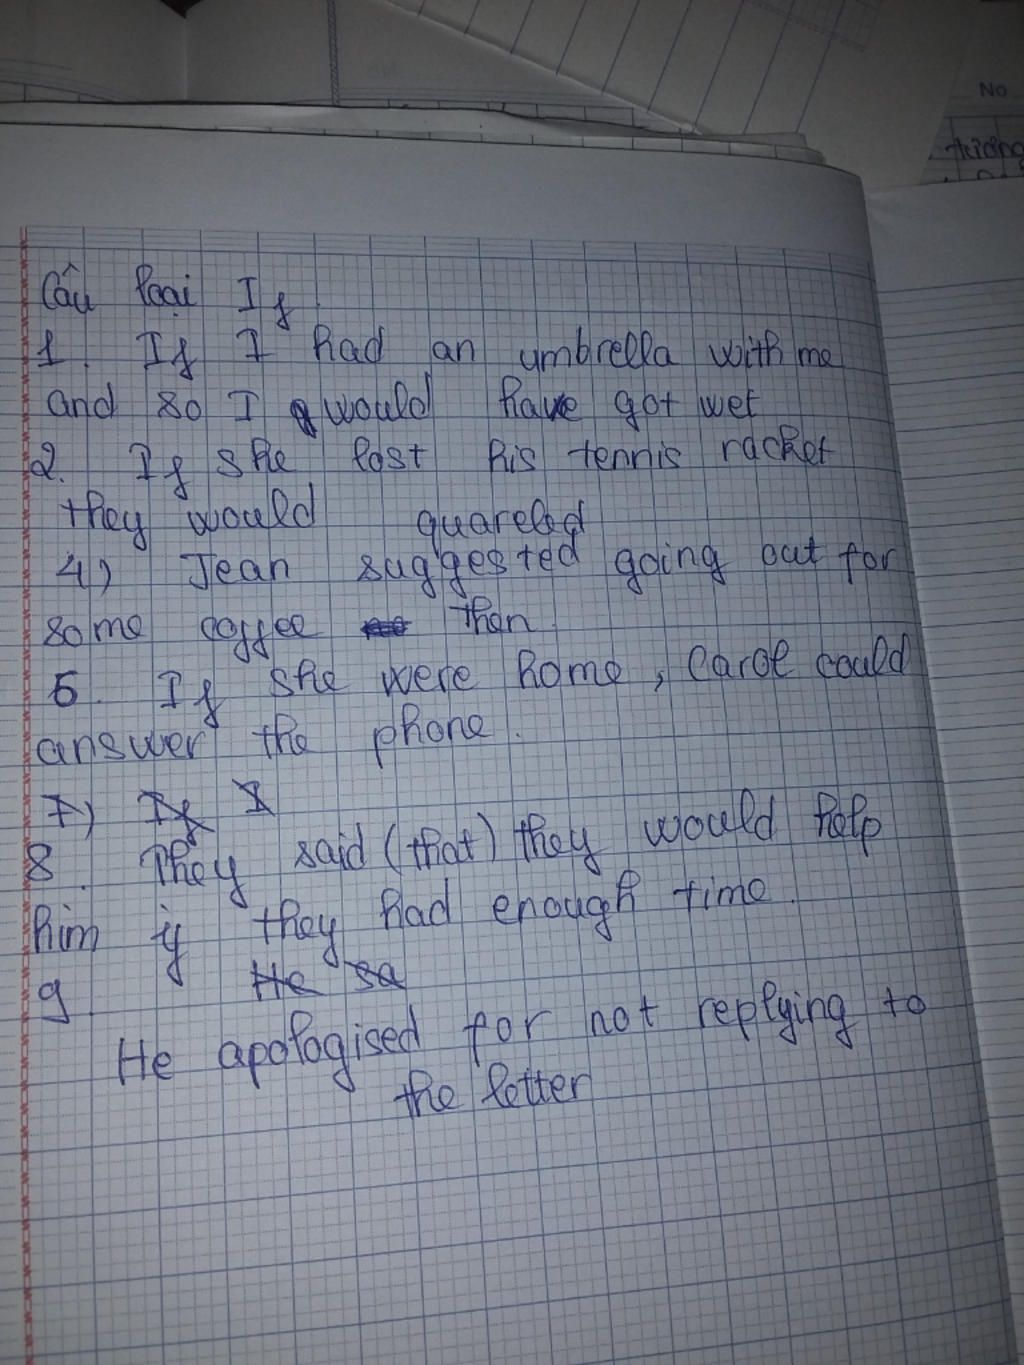 No
tương
Câu loại If
1. If I had an umbrella with me
and so I would have got wet
2. If she lost his tennis racket
they would quareled
4) Jean suggested going out for
some coffee then.
5. If she were home, Carol could
answer the phone.
7) If I
8. They said (that) they would help
him if they had enough time.
9 He sa
He apologised for not replying to
the letter